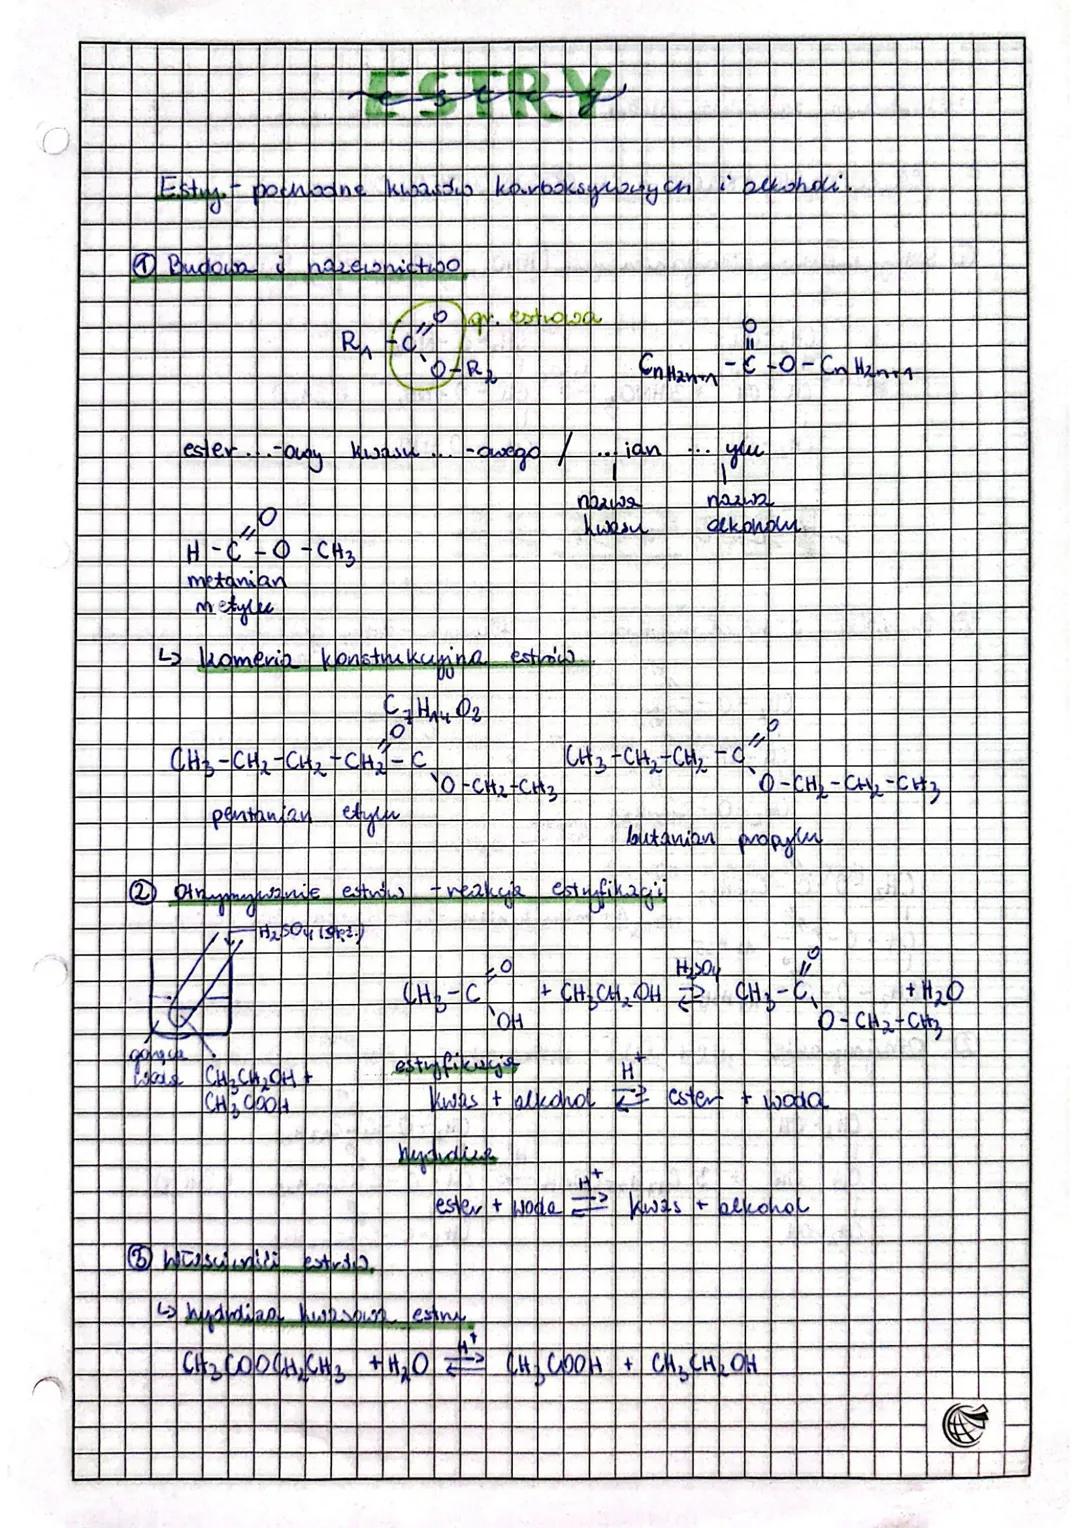 ESTRY
estry
Estry - pochodne kwasów karboksylowych i alkoholi.
① Budowa i nazewnictwo
R₁ - C =O O-R₂ gr. estrowa
O
CnH2n+1 - C - O - CnH2n+1
ester ...-owy kwasu ... -owego / ...ian ... ylu
nazwa kwasu nazwa alkoholu
O
H - C - O - CH₃
metanian
metylu
↳ Izomeria konstrukcyjna estrów
C₇H₁₄O₂
O O
CH₃-CH₂-CH₂-CH₂-C CH₃-CH₂-CH₂-C
O-CH₂-CH₃ O-CH₂-CH₂-CH₃
pentanian etylu
butanian propylu
② Otrzymywanie estrów - reakcja estryfikacji
H₂SO₄ (stęż.)
CH₃-C =O OH + CH₃CH₂OH ⇄ H₂SO₄ CH₃-C =O O-CH₂-CH₃ + H₂O
gorąca
woda CH₃CH₂OH +
CH₃COOH
estryfikacja
kwas + alkohol ⇄ H⁺ ester + woda
hydroliza
ester + woda ⇄ H⁺ kwas + alkohol
③ Właściwości estrów
↳ hydroliza kwasowa estru
CH₃COOCH₂CH₃ + H₂O ⇄ H⁺ CH₃COOH + CH₃CH₂OH